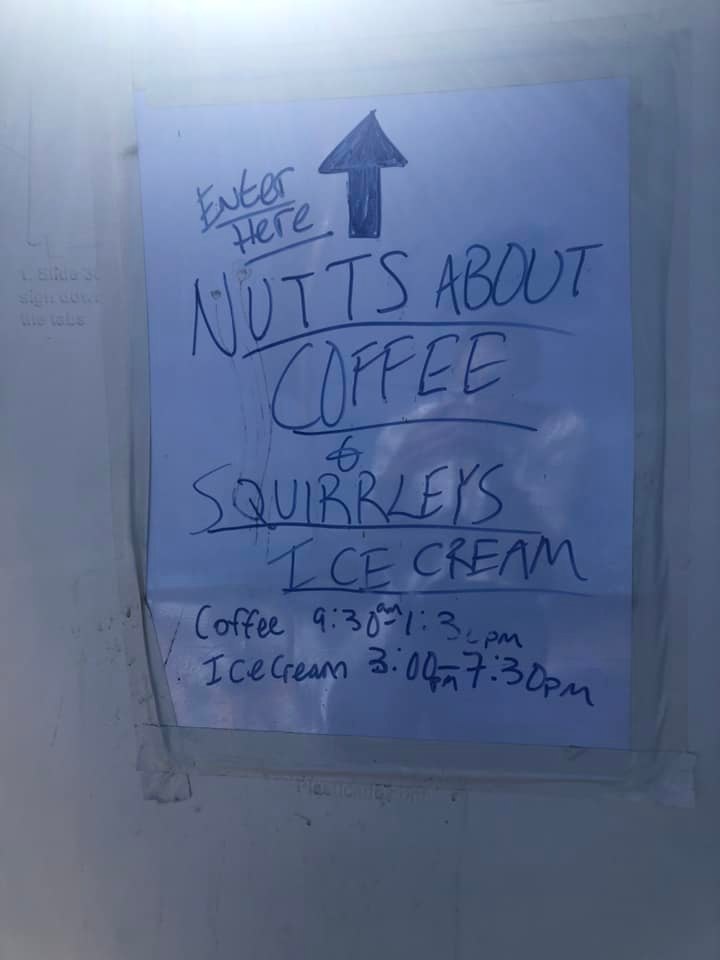 Enter
Here
NUTTS ABOUT
COFFEE
&
SQUIRRLEYS
ICE CREAM
Coffee 9:30am-1:30pm
Ice Cream 3:00pm-7:30pm
1. Slide
sign down
the tabs